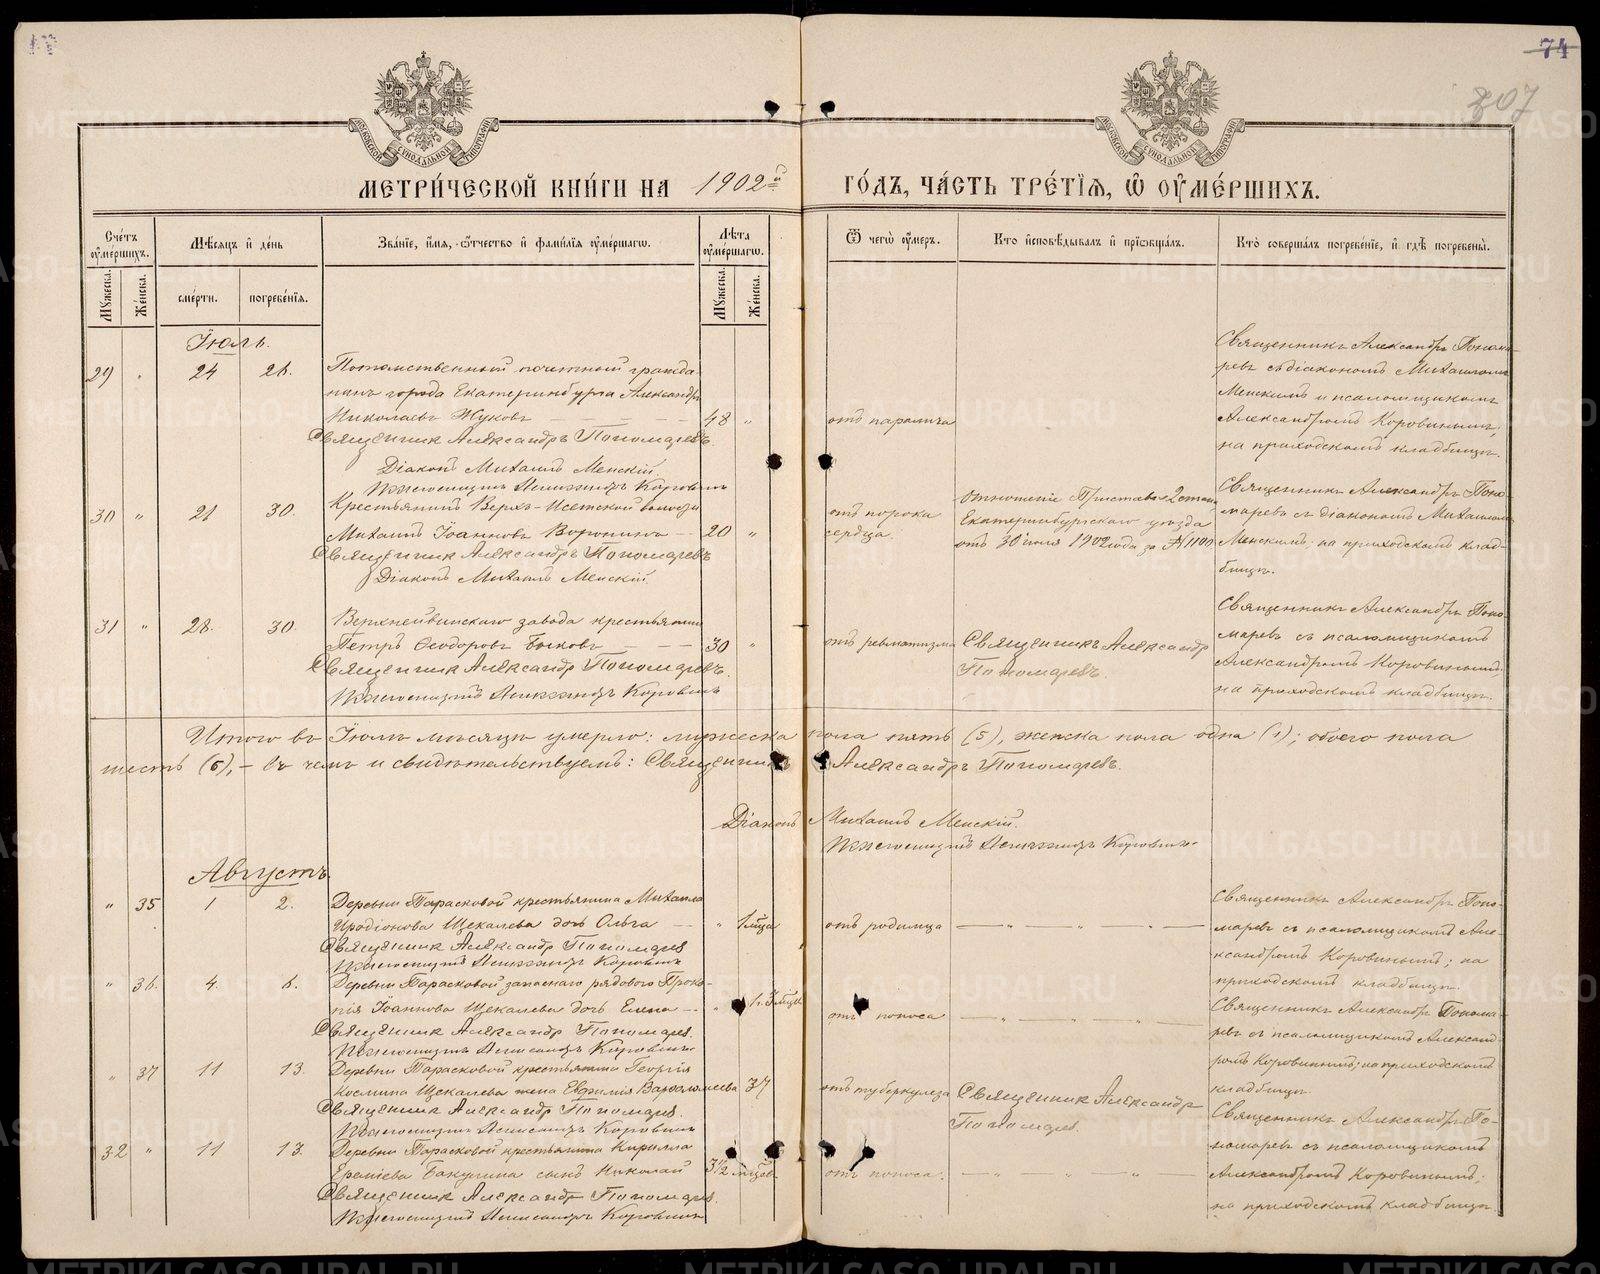 74
807
МЕТРИ́ЧЕСКОЙ КНИ́ГИ НА 1902й ГО́ДЪ, ЧА́СТЬ ТРЕ́ТІѦ, Ѽ ОУ҆МЕ́РШИХЪ.
Сче́тъ оу҆ме́ршихъ.
Мѣ́сяцъ и҆ де́нь
Зва́нїе, и҆́мя, ѻ҆́тчество и҆ фами́лїя оу҆ме́ршагѡ.
Лѣ́та оу҆ме́ршагѡ.
Ѿ чегѡ̀ оу҆́меръ.
Кто̀ и҆сповѣ́дывалъ и҆ прїѡбща́лъ.
Кто̀ соверша́лъ погребе́нїе, и҆ гдѣ̀ погребены̀.
Мꙋ́жеска.
Же́нска.
сме́рти.
погребе́нїя.
Мꙋ́жеска.
Же́нска.
Іюль.
29 24 26.
Потомственный почетный гражда-
нинъ города Екатеринбурга Александръ
Николаевъ Жуковъ 48 "
Священникъ Александръ Пономаревъ.
Діаконъ Михаилъ Менскій.
Псаломщикъ Александръ Коровинъ
отъ паралича
Священникъ Александръ Понома-
ревъ съ діакономъ Михаиломъ
Менскимъ и псаломщикомъ
Александромъ Коровинымъ,
на приходскомъ кладбищѣ.
30 " 21 30.
Крестьянинъ Верхъ-Исетской волости
Михаилъ Іоанновъ Воронинъ 20 "
Священникъ Александръ Пономаревъ
Діаконъ Михаилъ Менскій.
отъ порока
сердца.
отношеніе Пристава 2 стана
Екатеринбургскаго уѣзда
отъ 30 іюля 1902 года за №
Священникъ Александръ Поно-
маревъ съ діакономъ Михаиломъ
Менскимъ; на приходскомъ клад-
бищѣ.
31 " 28. 30.
Верхнейвинскаго завода крестьянинъ
Петръ Ѳеодоровъ 30 "
Священникъ Александръ Пономаревъ.
Псаломщикъ Александръ Коровинъ
отъ ревматизма
Священникъ Александръ
Пономаревъ.
Священникъ Александръ Поно-
маревъ съ псаломщикомъ
Александромъ Коровинымъ;
на приходскомъ кладбищѣ.
Итого въ Іюлѣ мѣсяцѣ умерло: мужеска пола пять (5), женска пола одна (1); обоего пола
шесть (6), — въ чемъ и свидѣтельствуемъ: Священникъ Александръ Пономаревъ.
Діаконъ Михаилъ Менскій.
Псаломщикъ Александръ Коровинъ.
Августъ.
" 35 1 2.
Деревни Тарасковой крестьянина Михаила
Иродіонова Щекалева дочь Ольга " 1 мѣсца
Священникъ Александръ Пономаревъ
Псаломщикъ Александръ Коровинъ
отъ родимца
Священникъ Александръ Поно-
маревъ съ псаломщикомъ Але-
ксандромъ Коровинымъ; на
приходскомъ кладбищѣ.
" 36. 4. 6.
Деревни Тарасковой запаснаго рядового Проко-
пія Іоаннова Щекалева дочь Елена
Священникъ Александръ Пономаревъ.
Псаломщикъ Александръ Коровинъ
отъ поноса
Священникъ Александръ Понома-
ревъ съ псаломщикомъ Александ-
ромъ Коровинымъ; на приходскомъ
кладбищѣ.
" 37 11 13.
Деревни Тарасковой крестьянина Георгія
Космина Щекалева жена Евфимія Варѳоломеева 37
Священникъ Александръ Пономаревъ.
Псаломщикъ Александръ Коровинъ
отъ туберкулеза
Священникъ Александръ
Пономаревъ.
Священникъ Александръ По-
номаревъ съ псаломщикомъ
Александромъ Коровинымъ;
на приходскомъ кладбищѣ.
32 " 11 13.
Деревни Тарасковой крестьянина Кирилла
Бакулина сынъ Николай 3 1/2 мѣсцов
Священникъ Александръ Пономаревъ.
Псаломщикъ Александръ Коровинъ
отъ поноса.
METRIKI.GASO-URAL.RU